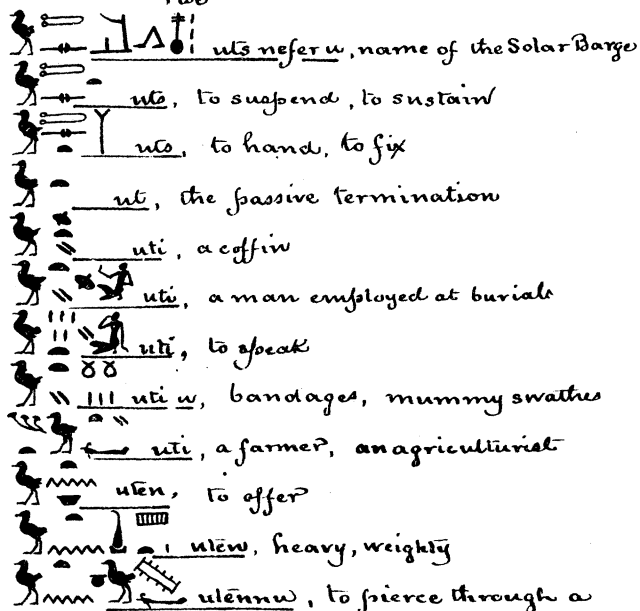 uts nefer u, name of the Solar Barge
uts, to suspend, to sustain
uts, to hand, to fix
ut, the passive termination
uti, a coffin
uti, a man employed at burials
uti, to speak
uti u, bandages, mummy swathes
uti, a farmer, an agriculturist
uten, to offer
uten, heavy, weighty
utennu, to pierce through a